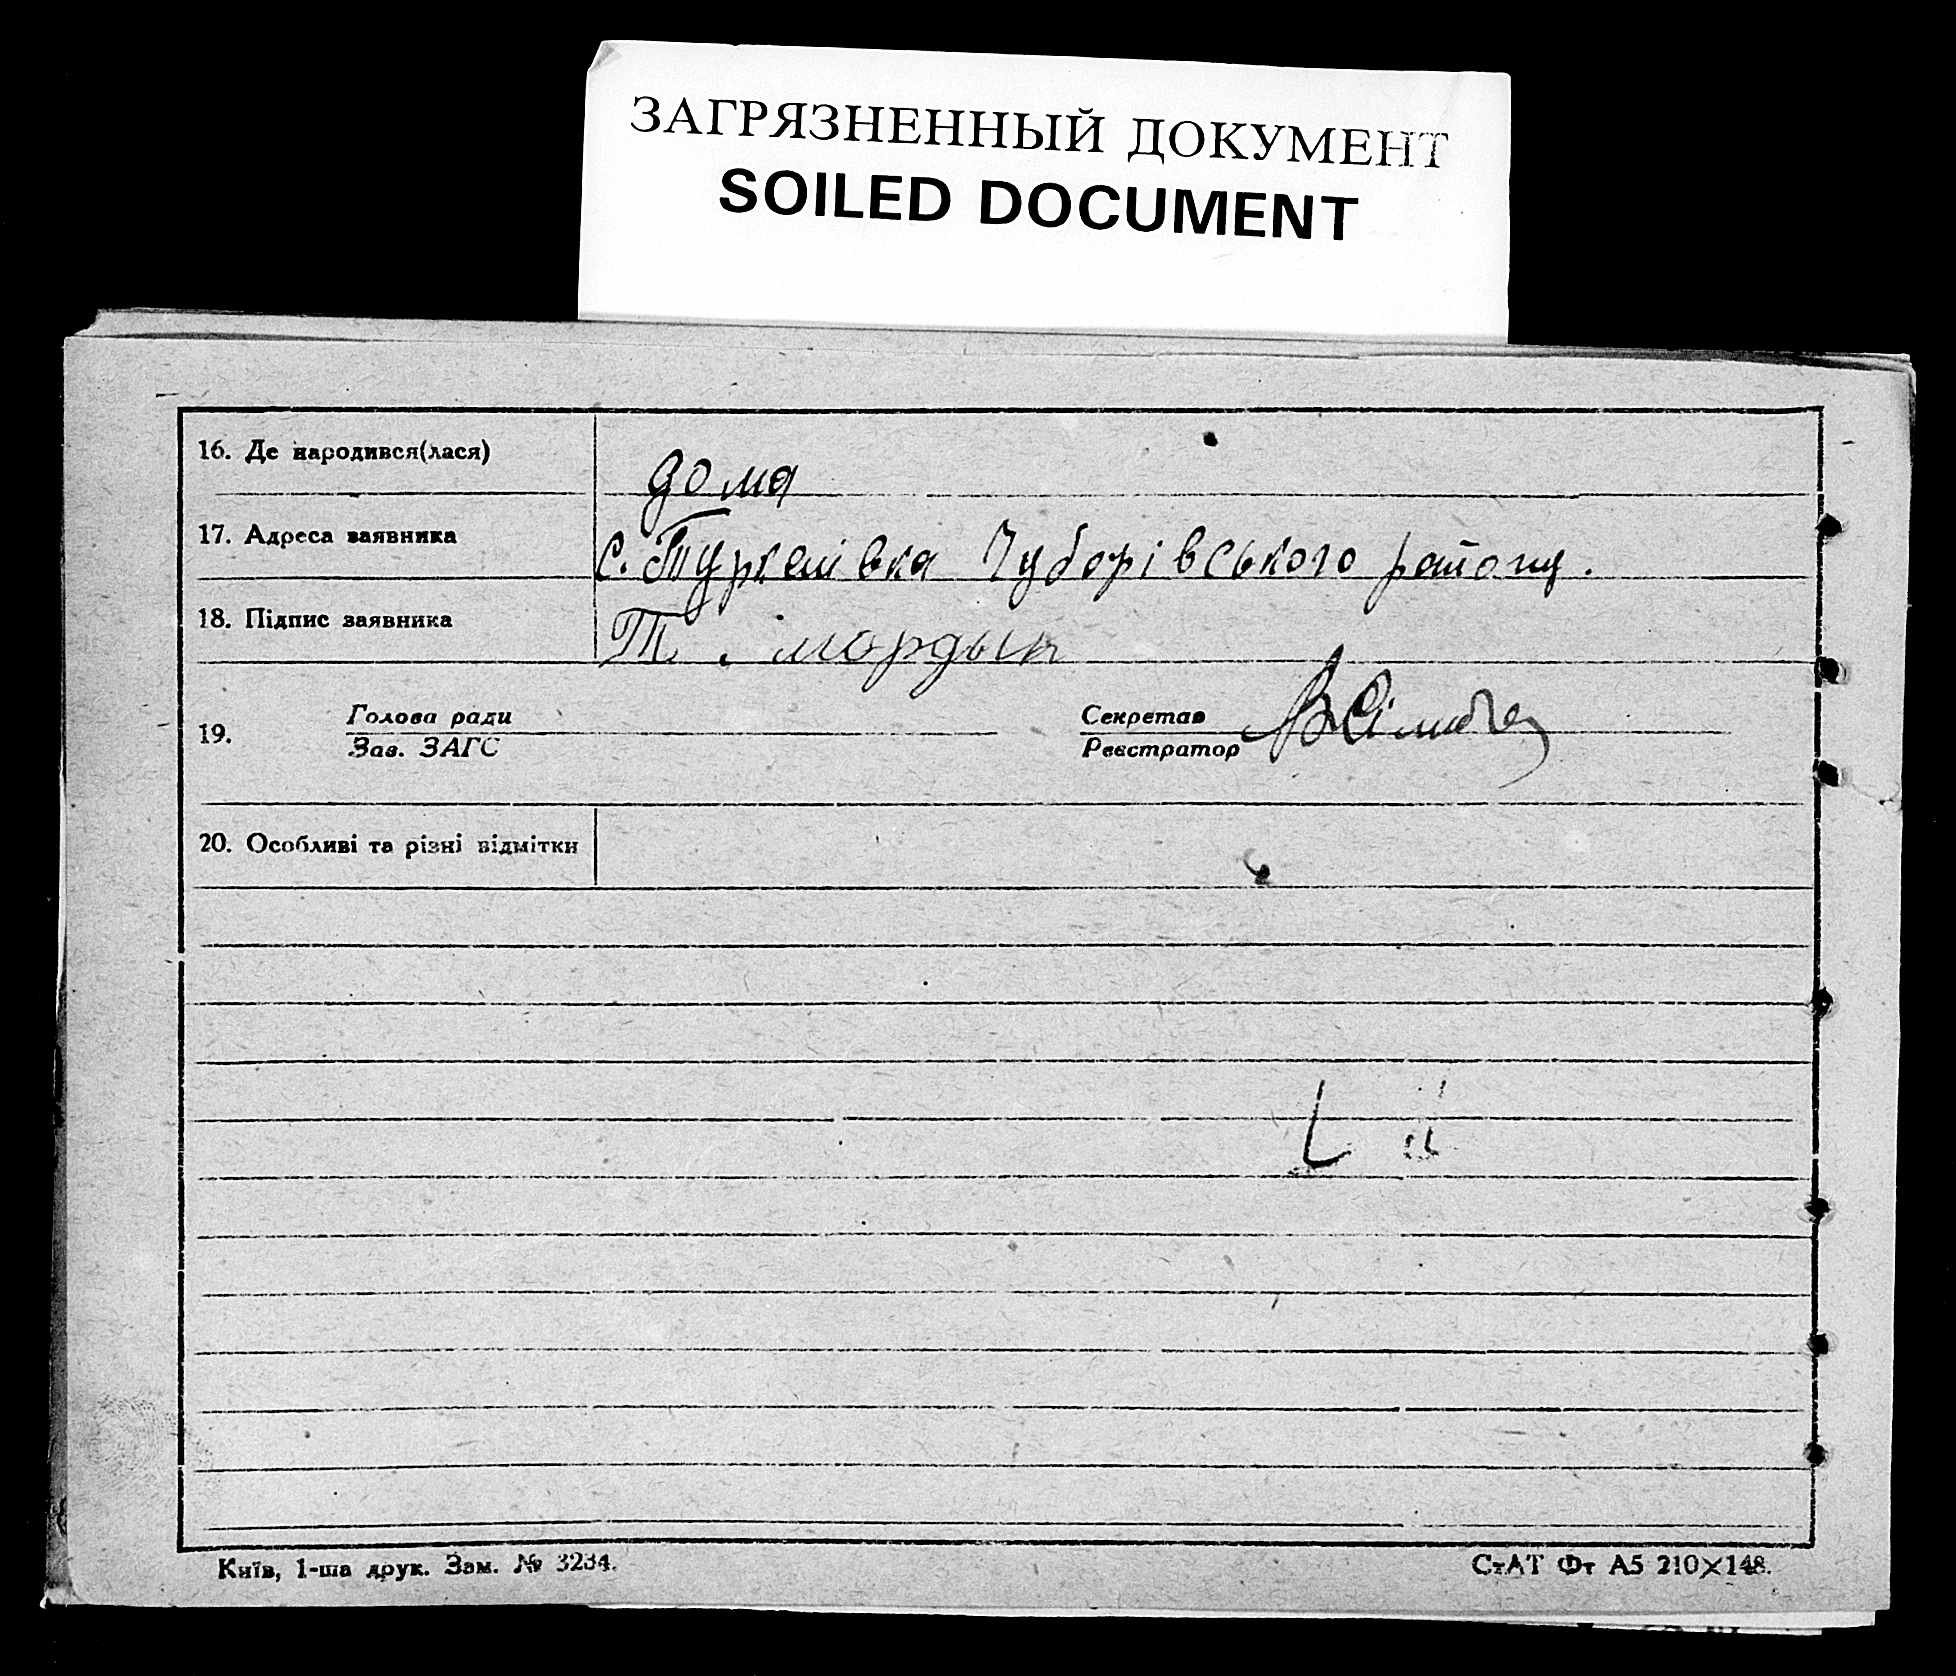 ЗАГРЯЗНЕННЫЙ ДОКУМЕНТ
SOILED DOCUMENT
16. Де народився(лася) дома
17. Адреса заявника с. Туркенівка Чубарівського району.
18. Підпис заявника Т. мордык
Голова ради Секретар
19.
Зав. ЗАГС Реєстратор
20. Особливі та різні відмітки
Київ, 1-ша друк. Зам. № 3234. СтАТ Фт А5 210×148.